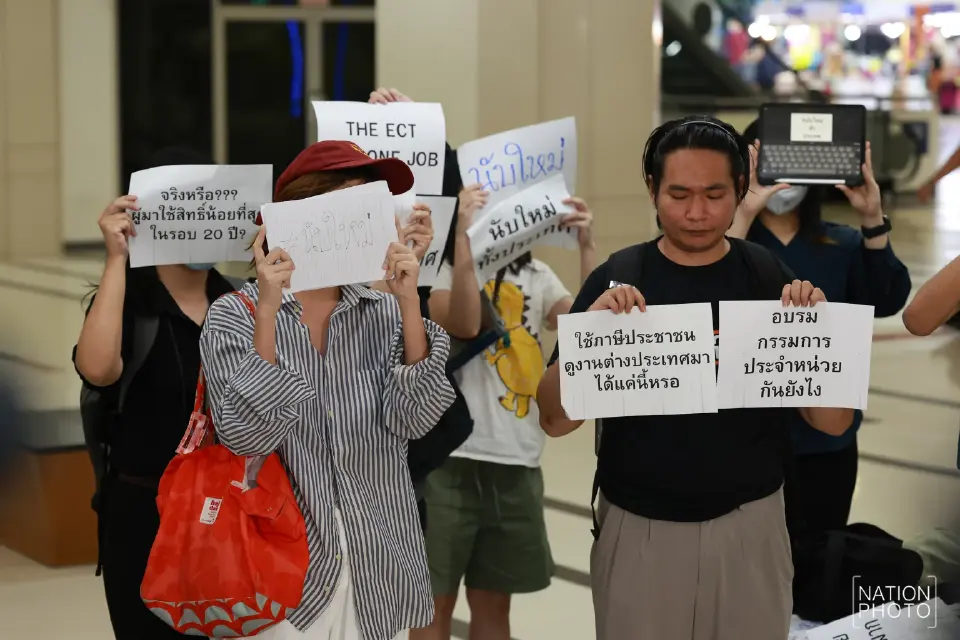 จริงหรือ???
ผู้มาใช้สิทธิ์น้อยที่สุ
ในรอบ 20 ปี?
#นับใหม่
THE ECT
ONE JOB
นับใหม่
นับใหม่
ทั้งประเทศ
ใช้ภาษีประชาชน
ดูงานต่างประเทศมา
ได้แค่นี้หรอ
อบรม
กรรมการ
ประจำหน่วย
กันยังไง
NATION
PHOTO